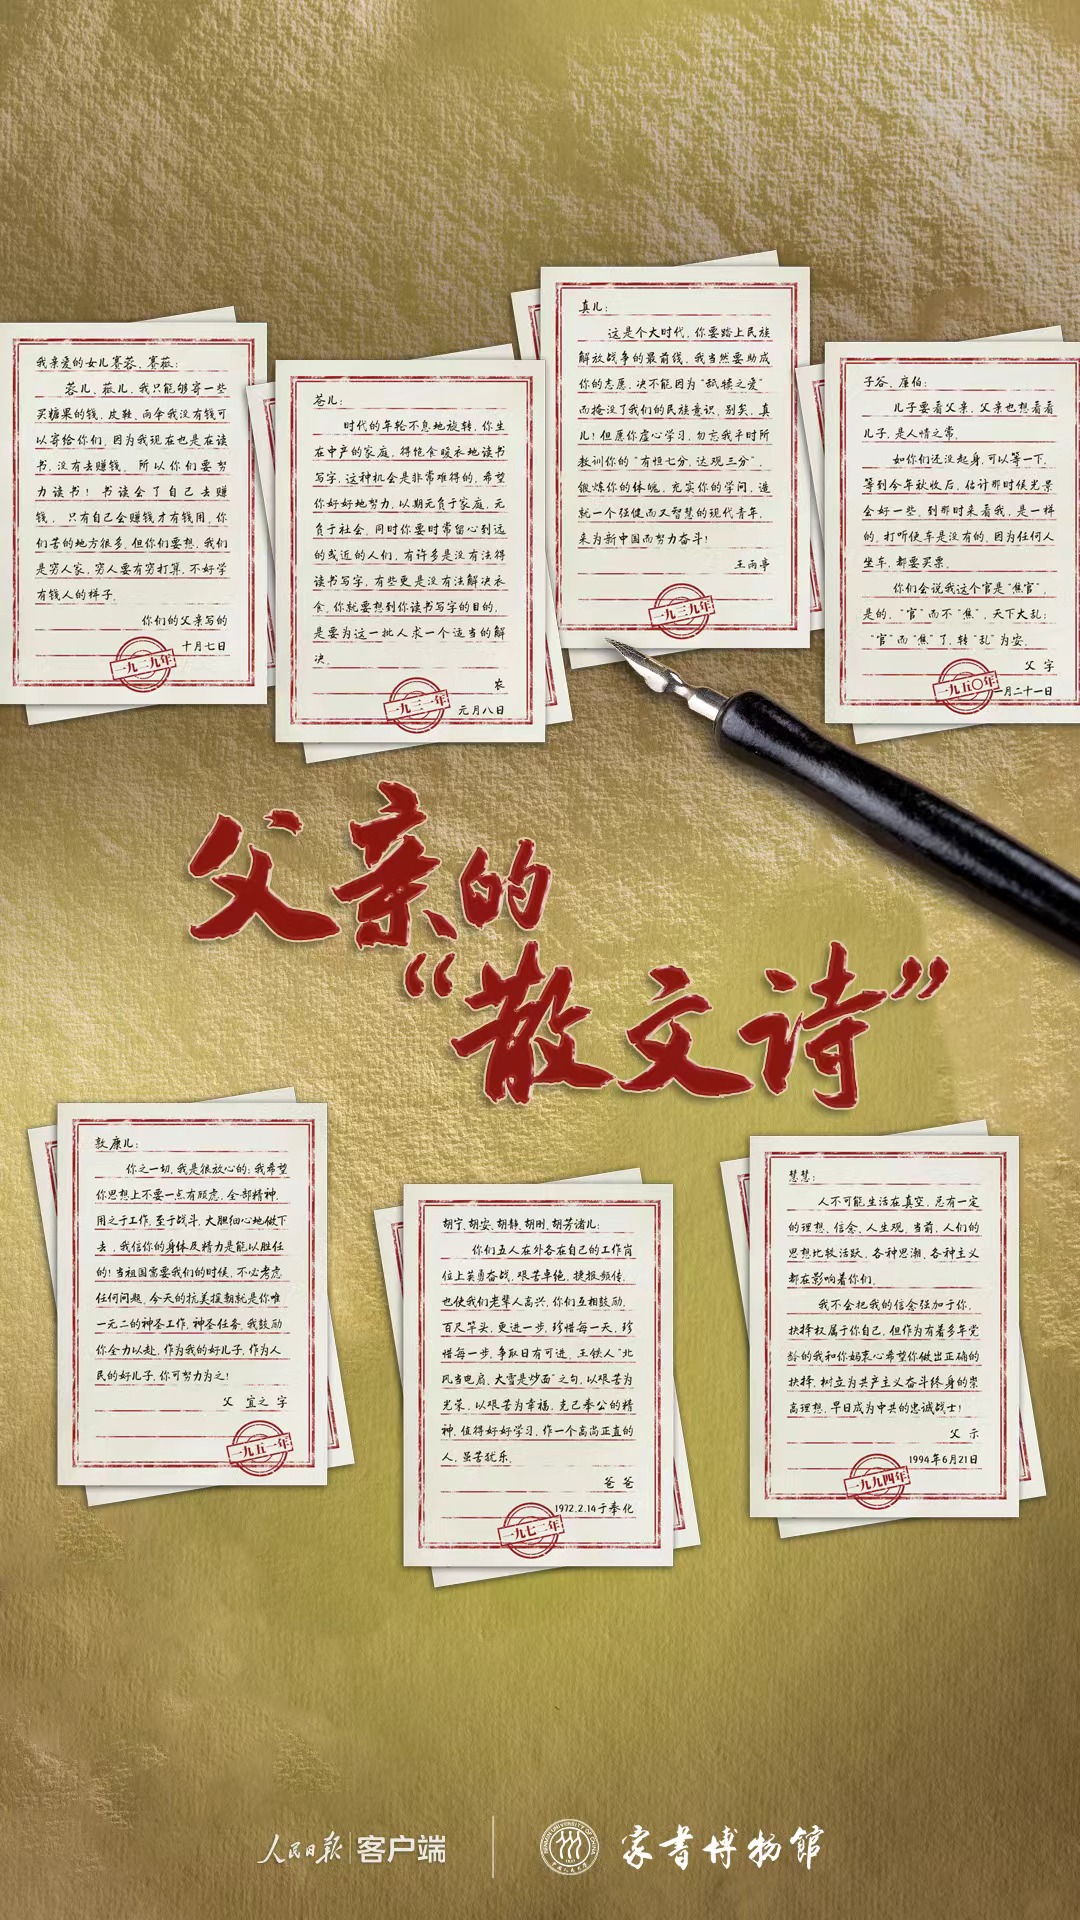 我亲爱的女儿赛蓉、赛菘：
蓉儿、菘儿，我只能够寄一些
买糖果的钱，皮鞋、雨伞我没有钱可
以寄给你们，因为我现在也是在读
书，没有去赚钱，所以你们要努
力读书！书读会了自己去赚
钱，只有自己会赚钱才有钱用，你
们苦的地方很多，但你们要想，我们
是穷人家，穷人要有穷打算，不好学
有钱人的样子。
你们的父亲写的
十月七日
一九二九年
苍儿：
时代的年轮不息地旋转，你生
在中产的家庭，得饱食暖衣地读书
写字，这种机会是非常难得的，希望
你好好地努力，以期无负于家庭，无
负于社会，同时你要时常留心到远
的或近的人们，有许多是没有法得
读书写字，有些更是没有法解决衣
食，你就要想到你读书写字的目的，
是要为这一批人求一个适当的解
决。
农
元月八日
一九三一年
真儿：
这是个大时代，你要踏上民族
解放战争的最前线，我当然要助成
你的志愿，决不能因为“舐犊之爱”
而掩没了我们的民族意识，别矣，真
儿！但愿你虚心学习，勿忘我平时所
教训你的“有恒七分，达观三分”，
锻炼你的体魄，充实你的学问，造
就一个强健而又智慧的现代青年，
来为新中国而努力奋斗！
王雨亭
一九三九年
子谷、廑伯：
儿子要看父亲，父亲也想看看
儿子，是人情之常，
如你们还没起身，可以等一下，
等到今年秋收后，估计那时候光景
会好一些，到那时来看我，是一样
的，打听便车是没有的，因为任何人
坐车，都要买票。
你们会说我这个官是“焦官”，
是的，“官”而不“焦”，天下大乱；
“官”而“焦”了，转“乱”为安。
父 字
一月二十一日
一九五〇年
父亲的
“散文诗”
敦康儿：
你之一切，我是很放心的；我希望
你思想上不要一点有顾虑，全部精神，
用之于工作，至于战斗，大胆细心地做下
去，我信你的身体及精力是能以胜任
的！当祖国需要我们的时候，不必考虑
任何问题，今天的抗美援朝就是你唯
一无二的神圣工作，神圣任务，我鼓励
你全力以赴，作为我的好儿子，作为人
民的好儿子，你可努力为之！
父 宜之 字
一九五一年
胡宁、胡安、胡静、胡刚、胡芳诸儿：
你们五人在外各在自己的工作岗
位上英勇奋战，艰苦卓绝，捷报频传，
也使我们老辈人高兴，你们互相鼓励，
百尺竿头，更进一步，珍惜每一天，珍
惜每一步，争取日有可进，王铁人“北
风当电扇，大雪是炒面”之句，以艰苦为
光荣，以艰苦为幸福，克己奉公的精
神，值得好好学习，作一个高尚正直的
人，虽苦犹乐。
爸爸
1972.2.14于奉化
一九七二年
慧慧：
人不可能生活在真空，总有一定
的理想、信念、人生观，当前，人们的
思想比较活跃，各种思潮，各种主义
都在影响着你们，
我不会把我的信念强加于你，
抉择权属于你自己，但作为有着多年党
龄的我和你妈衷心希望你做出正确的
抉择，树立为共产主义奋斗终身的崇
高理想，早日成为中共的忠诚战士！
父 示
1994年6月21日
一九九四年
人民日报 客户端 家书博物馆